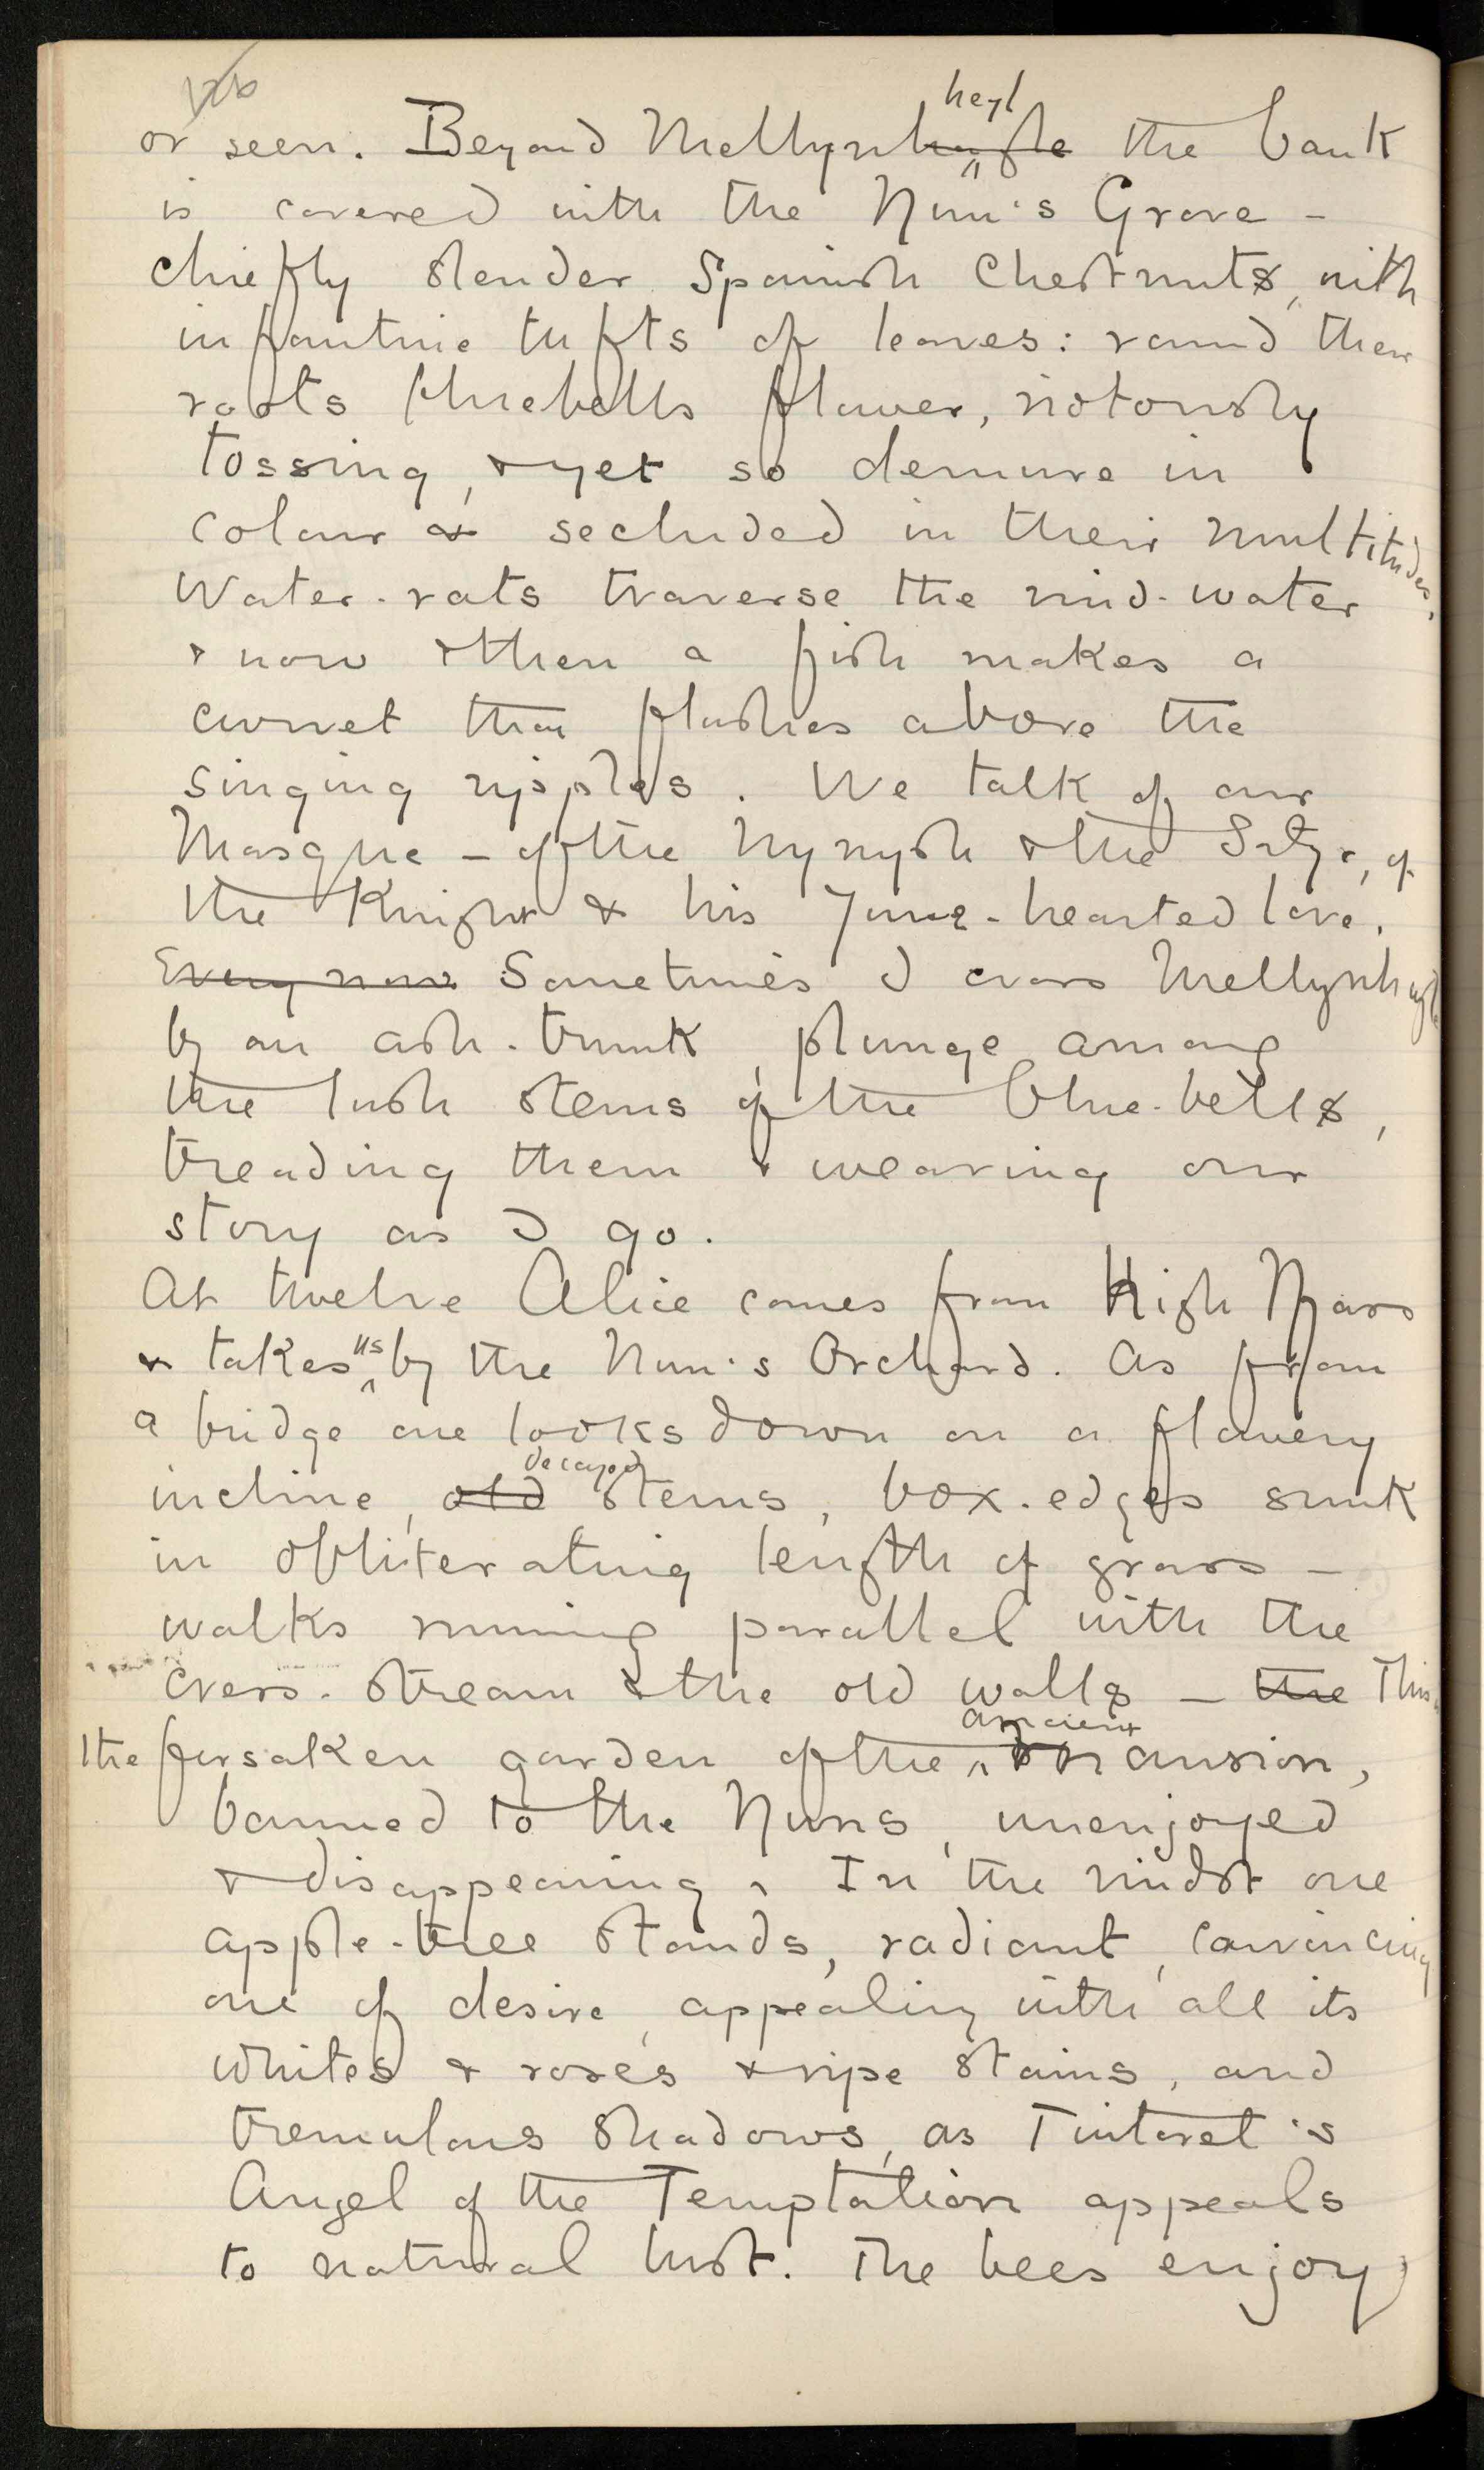 or seen. Beyond Mellynhayle heyl the bank
is covered with the Nun's Grove –
chiefly slender Spanish Chestnuts, with
infantine tufts of leaves: round their
roots bluebells flower, riotously
tossing, & yet so demure in
colour & secluded in their multitudes.
Water-rats traverse the mid-water
& now & then a fish makes a
curvet that flashes above the
singing ripples. We talk of our
Masque – of the Nymph & the Satyr, of
the Knight & his June-hearted love.
Every now Sometimes I cross Mellynheyle
by an ash-trunk, plunge among
the lush stems of the blue-bells,
treading them & weaving our
story as I go.
At twelve Alice comes from High Mass
& takes us by the Nun's Orchard. As from
a bridge one looks down on a flowery
incline, old decayed stems, box-edges sunk
in obliterating length of grass –
walks running parallel with the
cress-stream & the old walls – the This
the forsaken garden of the ancient mansion,
banned to the Nuns, unenjoyed
& disappearing. In the midst one
apple-tree stands, radiant, convincing
one of desire, appealing with all its
whites & roses & ripe stains, and
tremulous shadows, as Tintoret's
Angel of the Temptation appeals
to natural lust. The bees enjoy